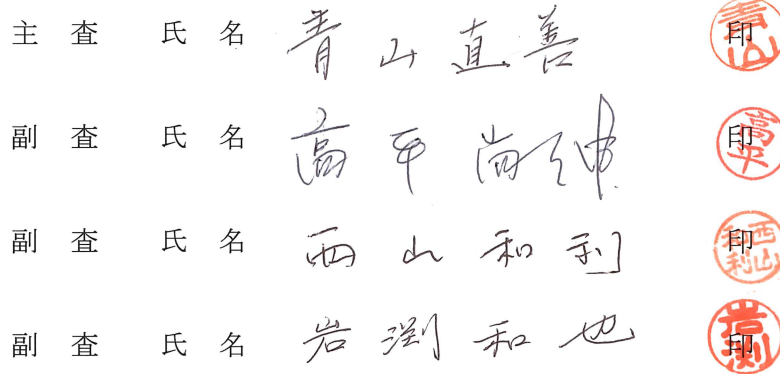 主査 氏名 青山直善 印 青山
副査 氏名 高平尚伸 印 高平
副査 氏名 西山和利 印 西山和利
副査 氏名 岩渕和也 印 岩渕